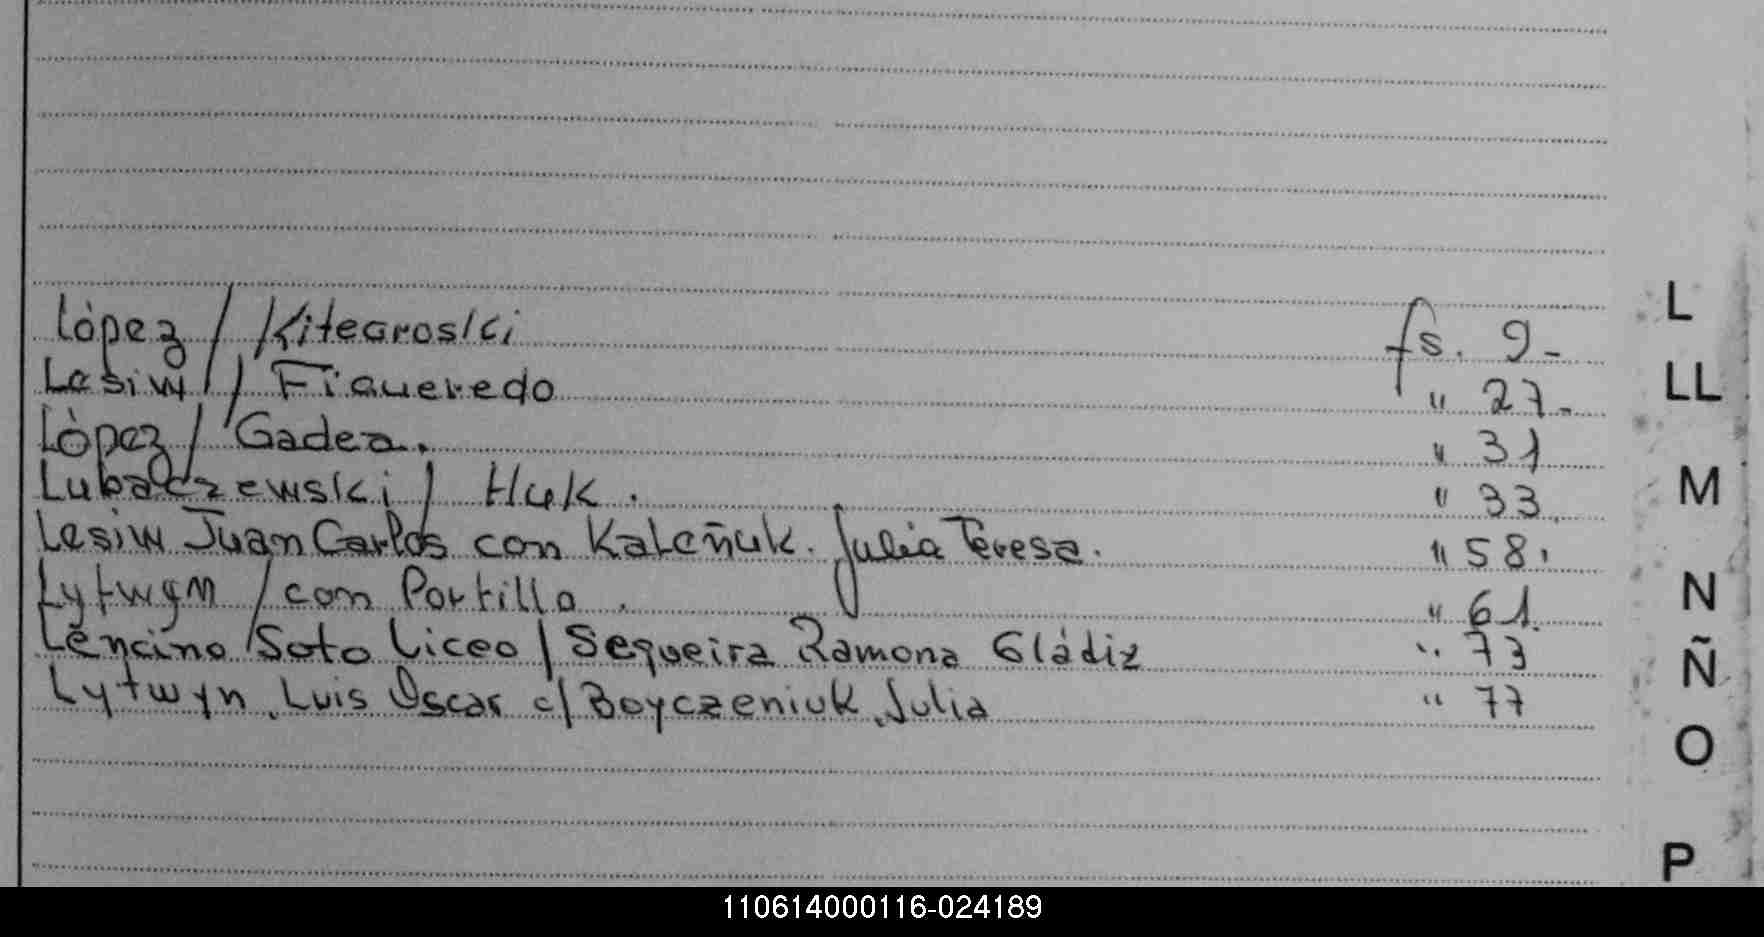 López / Kitearoski fs. 9-
Lesiw / Figueredo " 27-
López / Gadea. " 31
Lubaczewski / Huk. " 33.
Lesiw Juan Carlos con Kaleñuk. Julia Teresa. " 58.
Lytwyn / con Portillo. " 61.
Lencino Soto Liceo / Sequeira Ramona Gládiz " 73
Lytwyn, Luis Oscar c/ Boyczeniuk, Julia " 77
L
LL
M
N
Ñ
O
P
110614000116-024189